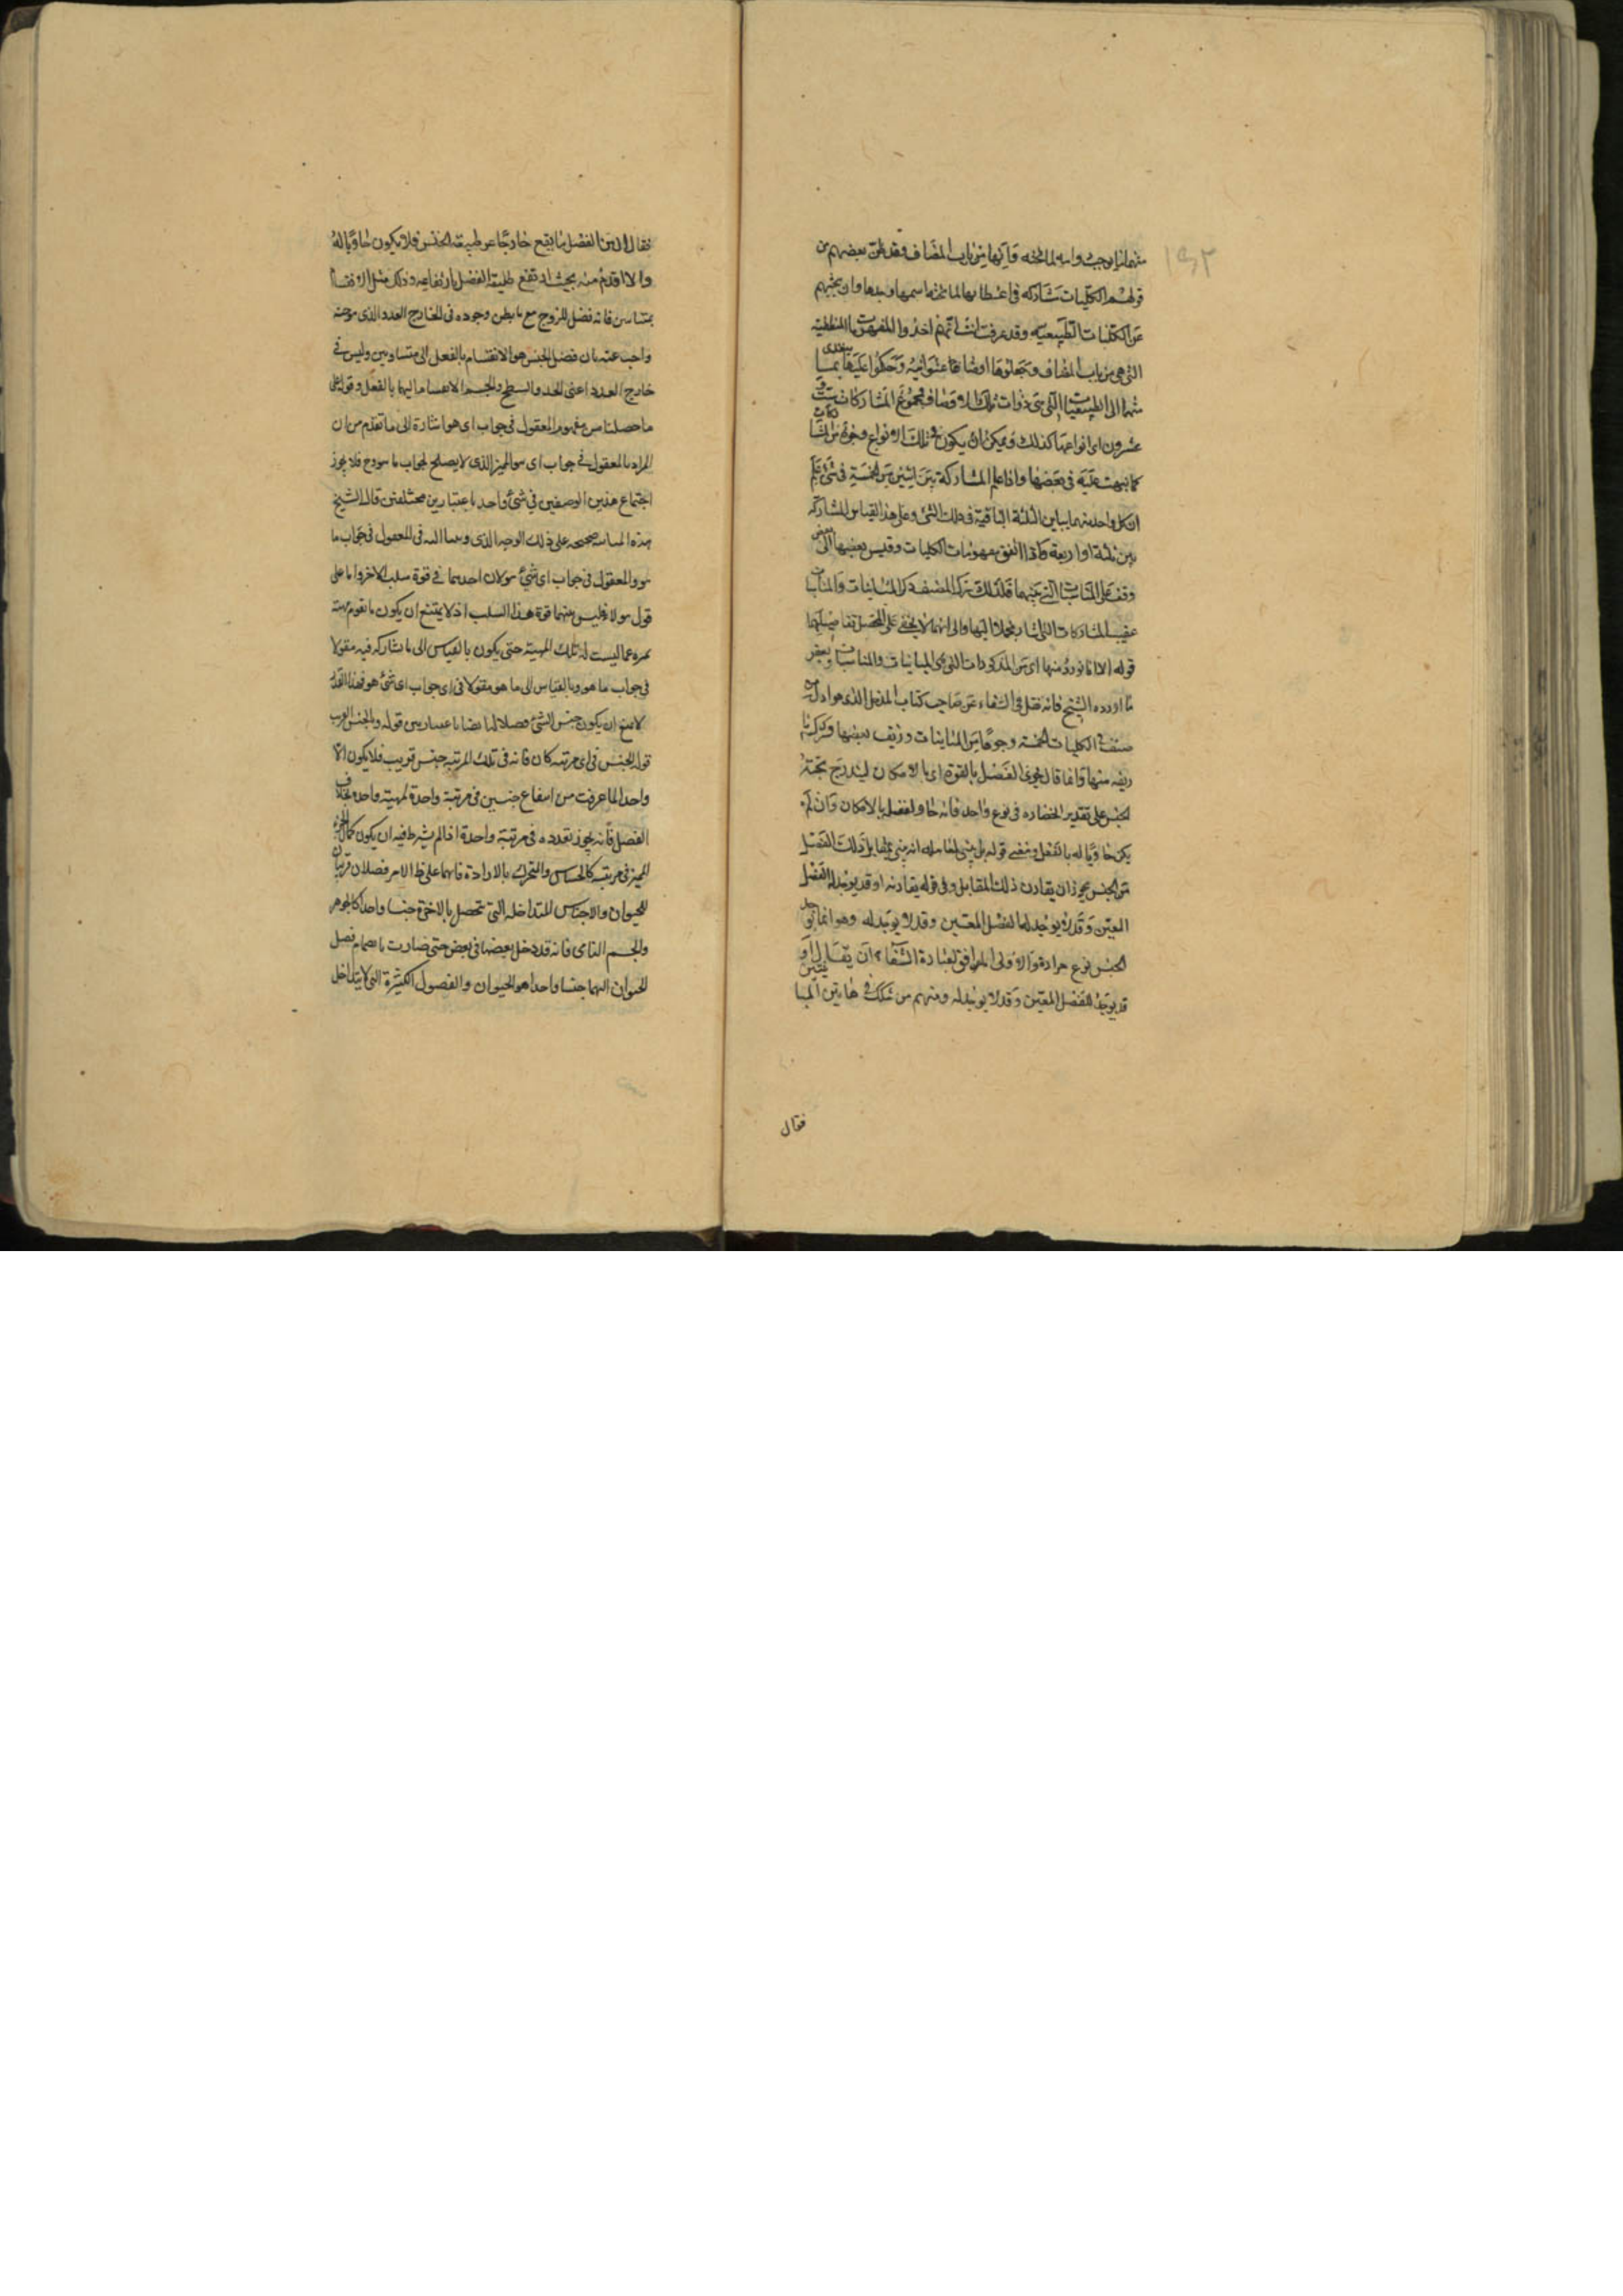 ١٥٢
منها انما يوجب واسمه لما تحته فانها من باب المضاف فقد ظن بعضهم من
قولهم الكليات تشارك في اعطائها لما تحتها اسمها وحدها وان بحثهم
عن الكليات الطبيعية وقد عرفت انت انهم اخذوا المفهومات المنطقية
التي هي من باب المضاف وجعلوها اوصافا عنوانية وحكموا عليها بما يتعدى
منها الى الطبيعيات التي هي ذوات تلك الاوصاف فمجموع المشاركات ست و
عشرون اي انواعها كذلك ويمكن ان يكون في تلك الانواع وجوه من المشاركات
كما نبهت عليه في بعضها واذا علم المشاركة بين اثنين من الخمسة في شئ علم
ان كل واحد منهما يباين الثلثة الباقية في ذلك الشئ وعلى هذا القياس المشاركة
بين ثلثة او اربعة فاذا اتقن مفهومات الكليات وقيس بعضها الى بعض
وقف على المناسبات التي بينهما فلذلك ترك المصنف ذكر المباينات والمناسبات
عقيب المشاركات التي اشار مجملا اليها والى انها لا يخفى على المحصل تفاصيلها
قوله الا انا نورد منها اي من المذكورات التي هي المباينات والمناسبات بعض
ما اورده الشيخ فانه نقل في الشفاء عن صاحب كتاب المدخل الذي هو اول من
صنف في الكليات الخمسة وجوها من المباينات وزيف بعضها وترك ما
زيفه منها وانما قال يحوى الفصل بالقوة اي بالامكان ليندرج تحته
الجنس على تقدير انحصاره في نوع واحد فانه حاو لفصله بالامكان وان لم
يكن حاويا له بالفعل ومعنى قوله بل يبقى لمقابله انه يبقى لمقابل ذلك الفصل
من الجنس يجوز ان يقارن ذلك المقابل وفي قوله يقارنه او قد يوجد له الفصل
المعين وقد لا يوجد له الفصل المعين وقد لا يوجد له وهو انما يوجد
الجنس نوع حزازة والاولى الموافق لعبارة الشفاء ان يقال او
قد يوجد الفصل المعين وقد لا يوجد له ومنهم من شكك في هاتين المباينتين
فقال
فقال ان من الفصل ما يقع خارجا عن طبيعة الجنس فلا يكون حاويا له
والا اقدم منه بحيث ارتفع طبيعة الفصل بارتفاعه وذلك مثل الانقسام
بمتساويين فانه فصل للزوج مع ما يظن وجوده في الخارج العدد الذي هو جنسه
واجيب عنه بان فصل الجنس هو الانقسام بالفعل الى متساويين وليس في
خارج العدد اعنى الخط والسطح والجسم الانقسام اليهما بالفعل وقوله على
ما حصلنا من مفهوم المعقول في جواب اي هو اشارة الى ما تقدم من ان
المراد بالمعقول في جواب اي هو المميز الذي لا يصلح لجواب ما هو وح فلا يجوز
اجتماع هذين الوصفين في شئ واحد باعتبارين مختلفين قال الشيخ
هذه المباينة صحيحة على ذلك الوجه الذي اومأنا اليه في المعقول في جواب ما
هو والمعقول في جواب اي شئ هو لان احدهما في قوة سلب الاخر واما على
قول هؤلاء فليس بينهما قوة هذا السلب اذ لا يمتنع ان يكون ما تقوم مهيته
يميزه عما ليست له تلك المهية حتى يكون بالقياس الى ما يشاركه فيه مقولا
في جواب ما هو وبالقياس الى ما هو مقولا في اي جواب اي شئ هو فهذا القدر
لا يمنع ان يكون جنس الشئ فصلا له ايضا باعتبارين قوله والجنس القريب
قوله الجنس في اي مرتبه كان فانه في تلك المرتبة جنس قريب فلا يكون الا
واحدا لما عرفت من امتناع جنسين في مرتبة واحدة لمهية واحدة بخلاف
الفصل فانه يجوز تعدده في مرتبة واحدة اذا لم يشترط فيه ان يكون كمال الجزء
المميز في مرتبه كالحساس والمتحرك بالارادة فانهما على ظ الامر فصلان قريبان
للحيوان والاجناس المتداخله التي تحصل بالاخرة جنسا واحدا كالجوهر
والجسم النامى فانه قد دخل بعضها في بعض حتى صارت بانضمام فصل
الحيوان اليهما جنسا واحدا هو الحيوان والفصول الكثيرة التي لا يتداخل